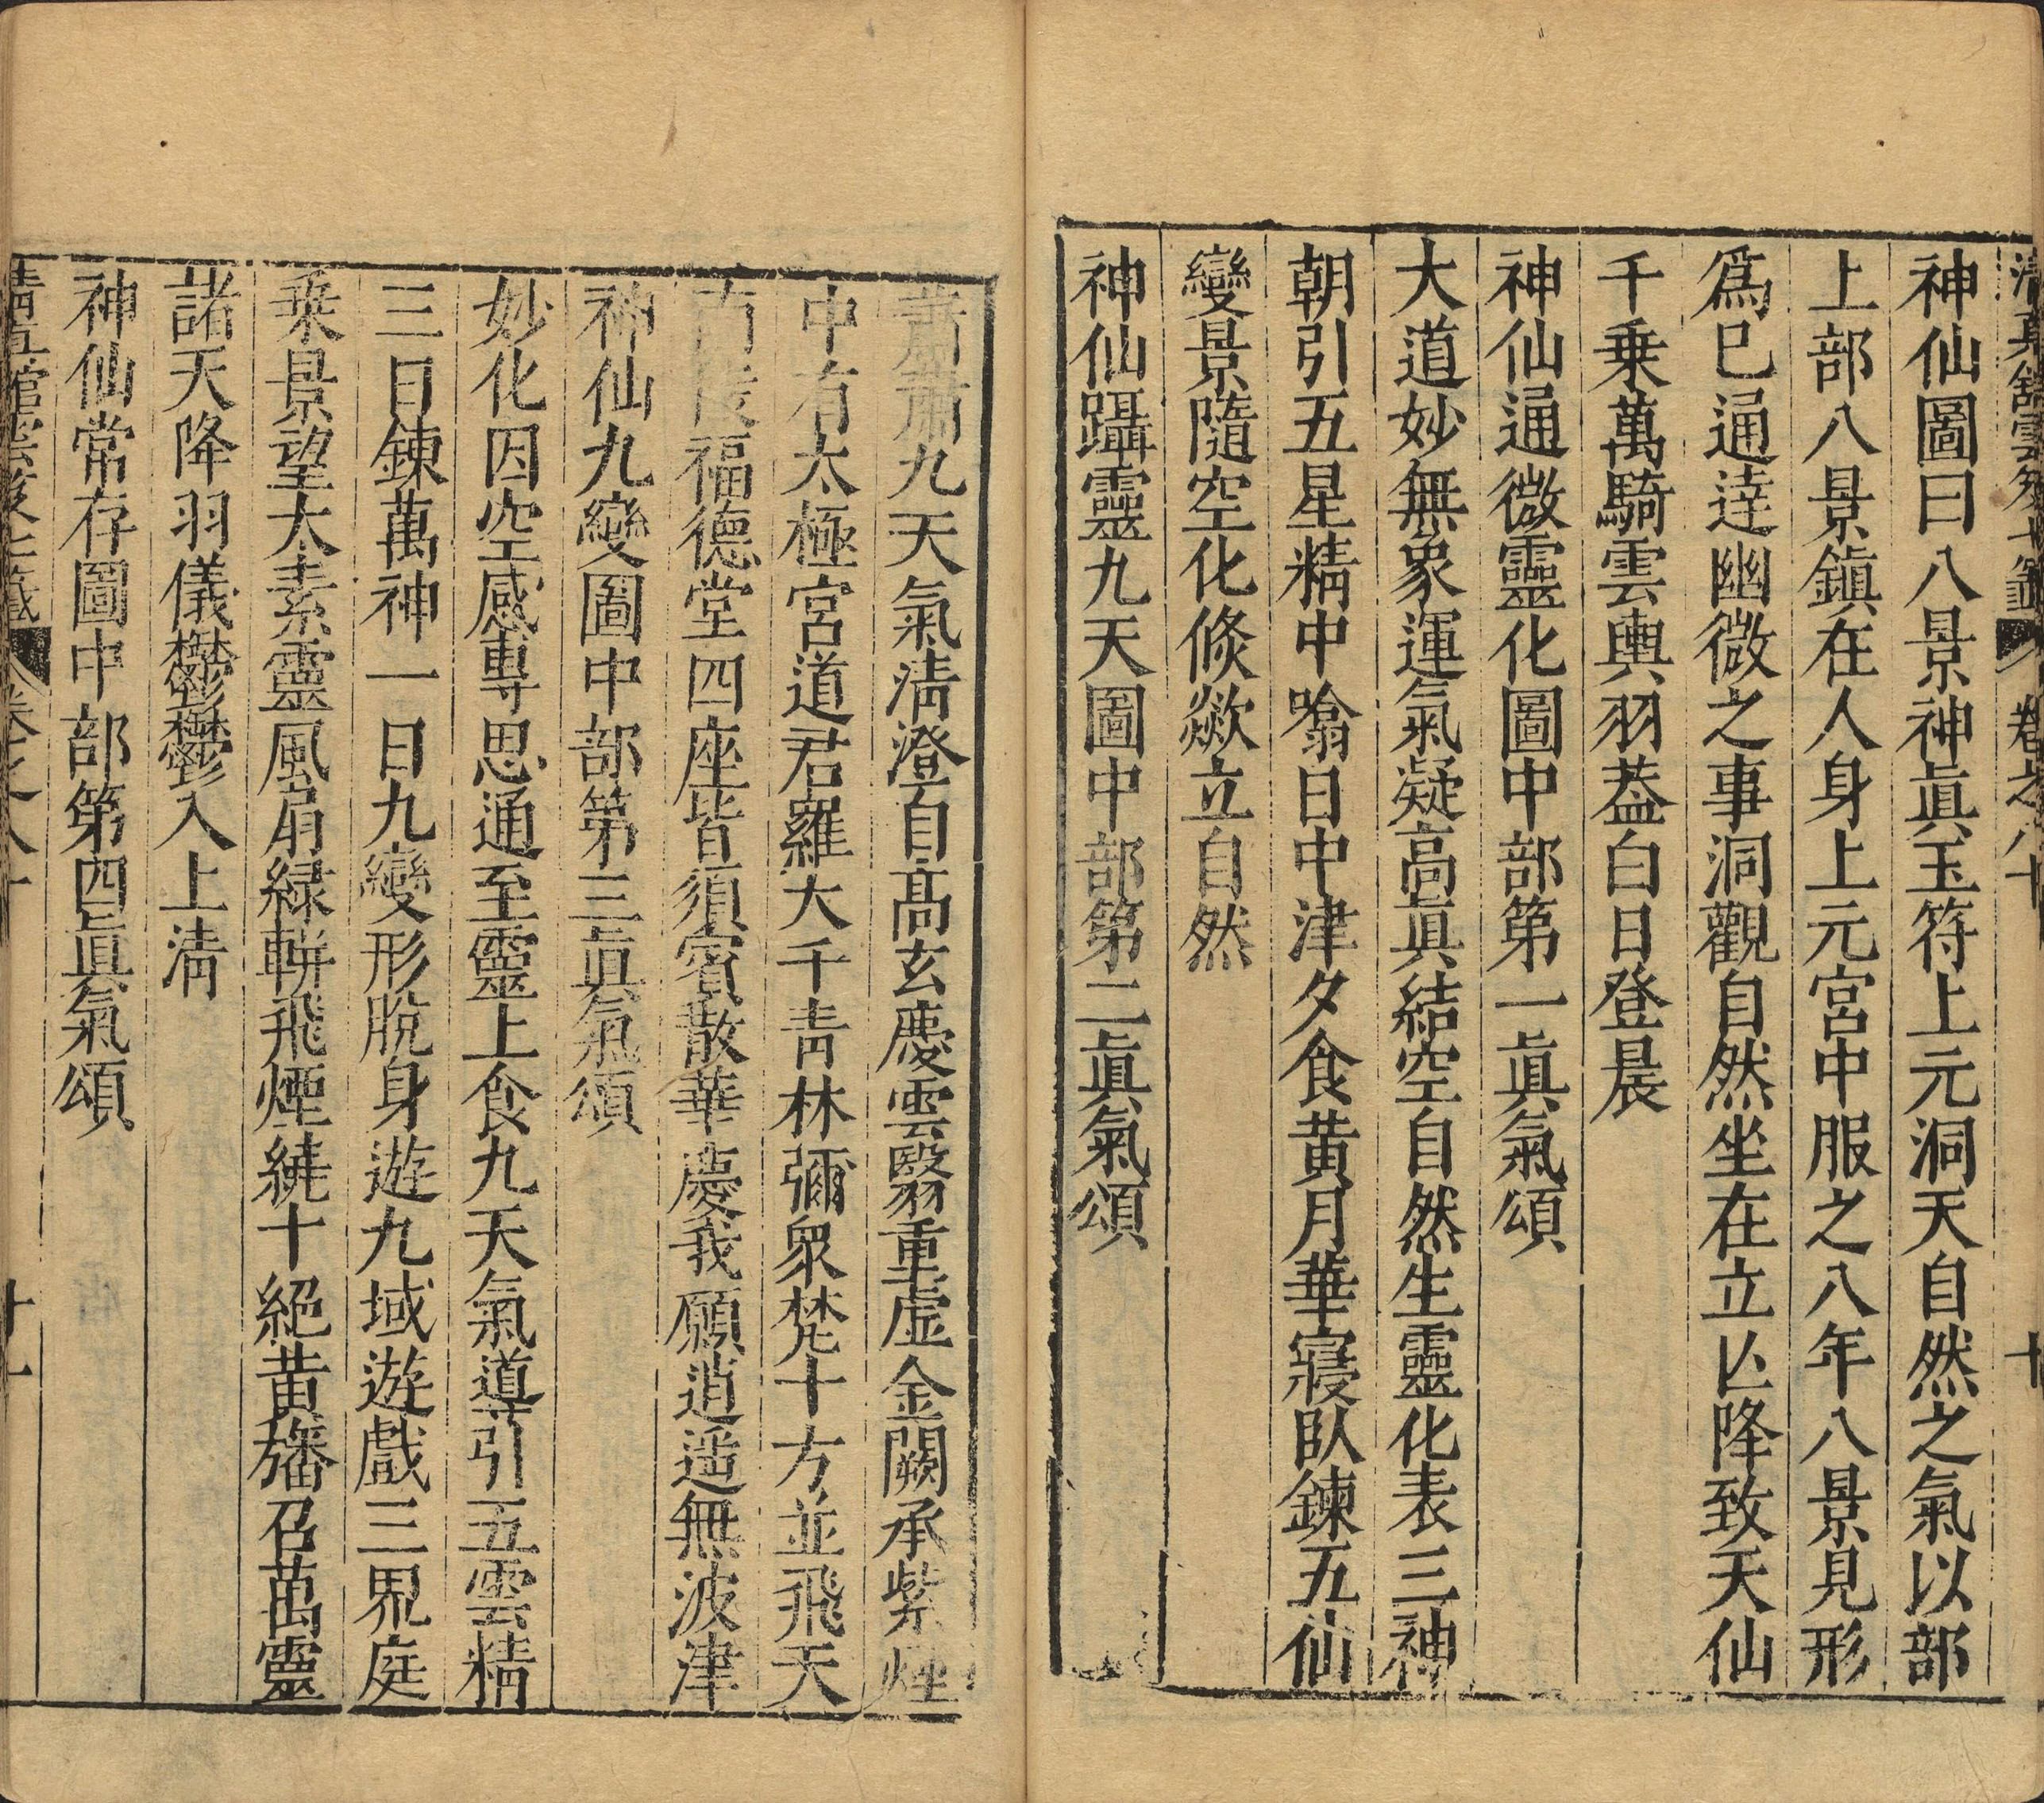 清真館雲笈七籤 卷之八十 十
神仙圖曰八景神眞玉符上元洞天自然之氣以部
上部八景鎭在人身上元宮中服之八年八景見形
爲巳通逹幽微之事洞觀自然坐在立亾降致天仙
千乗萬騎雲輿羽葢白日登晨
神仙通微靈化圖中部第一眞氣頌
大道妙無象運氣凝高眞結空自然生靈化表三神
朝引五星精中噏日中津夕食黄月華寢臥鍊五仙
變景隨空化倐歘立自然
神仙躡靈九天圖中部第二眞氣頌
肅肅九天氣淸澄自高玄慶雲翳重虛金闕承紫煙
中有太極宮道君羅大千靑林彌衆梵十方並飛天
南陵福德堂四座皆須賓散華慶我願逍遥無波津
神仙九變圖中部第三眞氣頌
妙化因空感専思通至靈上食九天氣道引五雲精
三日鍊萬神一日九變形脫身遊九域遊戲三界庭
乗景望太素靈風扇緑軿飛煙繞十絕黄旛召萬靈
諸天降羽儀欝欝入上淸
神仙常存圖中部第四眞氣頌
清真館雲笈七籤 卷之八十 十一